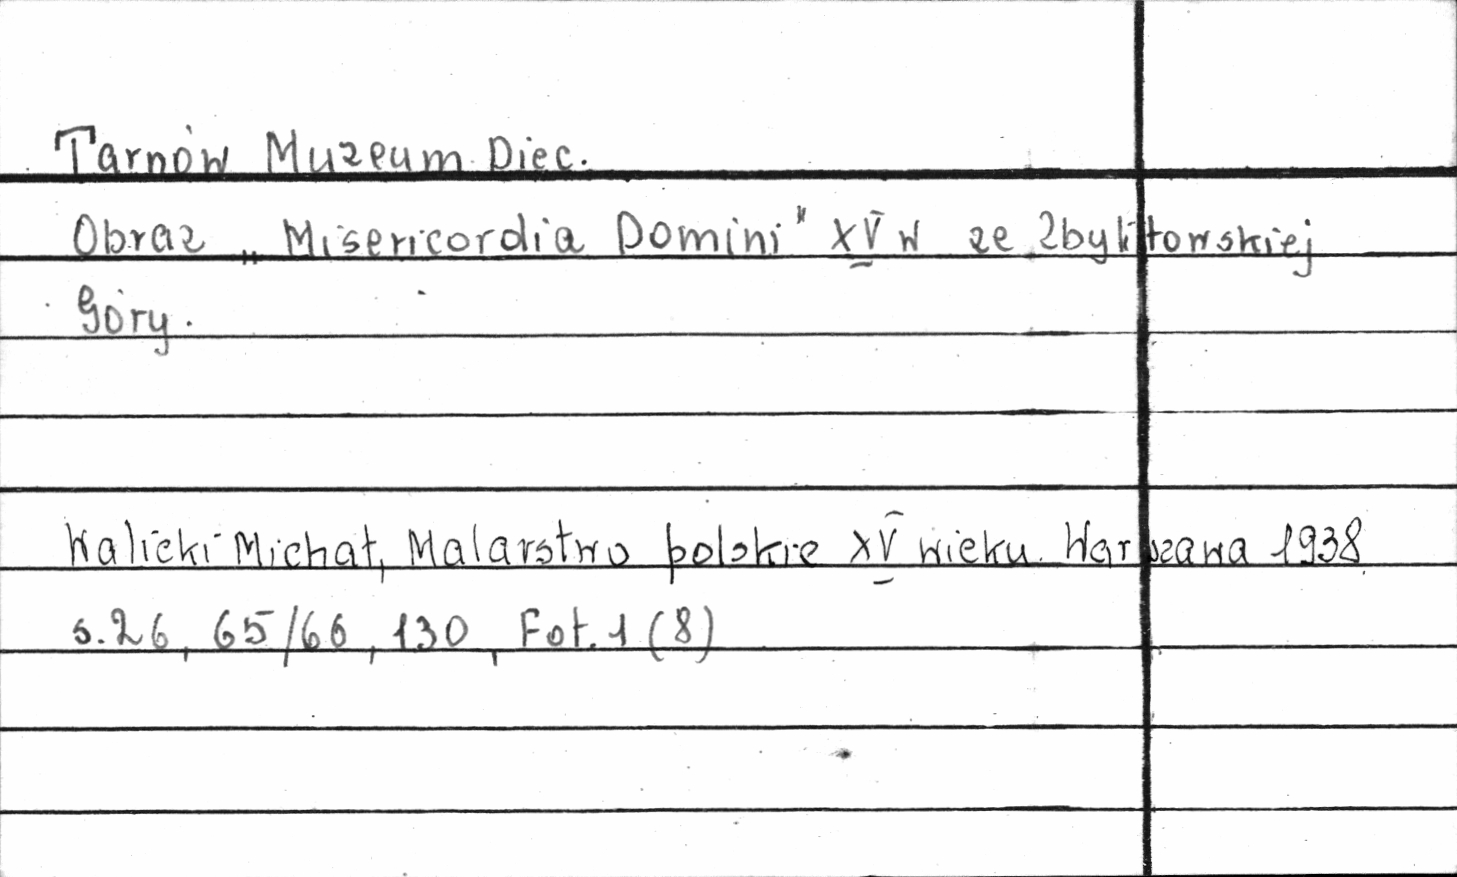 Tarnów Muzeum Diec.
Obraz „Misericordia Domini" XV w ze Zbylitowskiej
Góry.
Walicki Michał, Malarstwo polskie XV wieku. Warszawa 1938
s. 26, 65/66, 130, Fot. 1 (8)